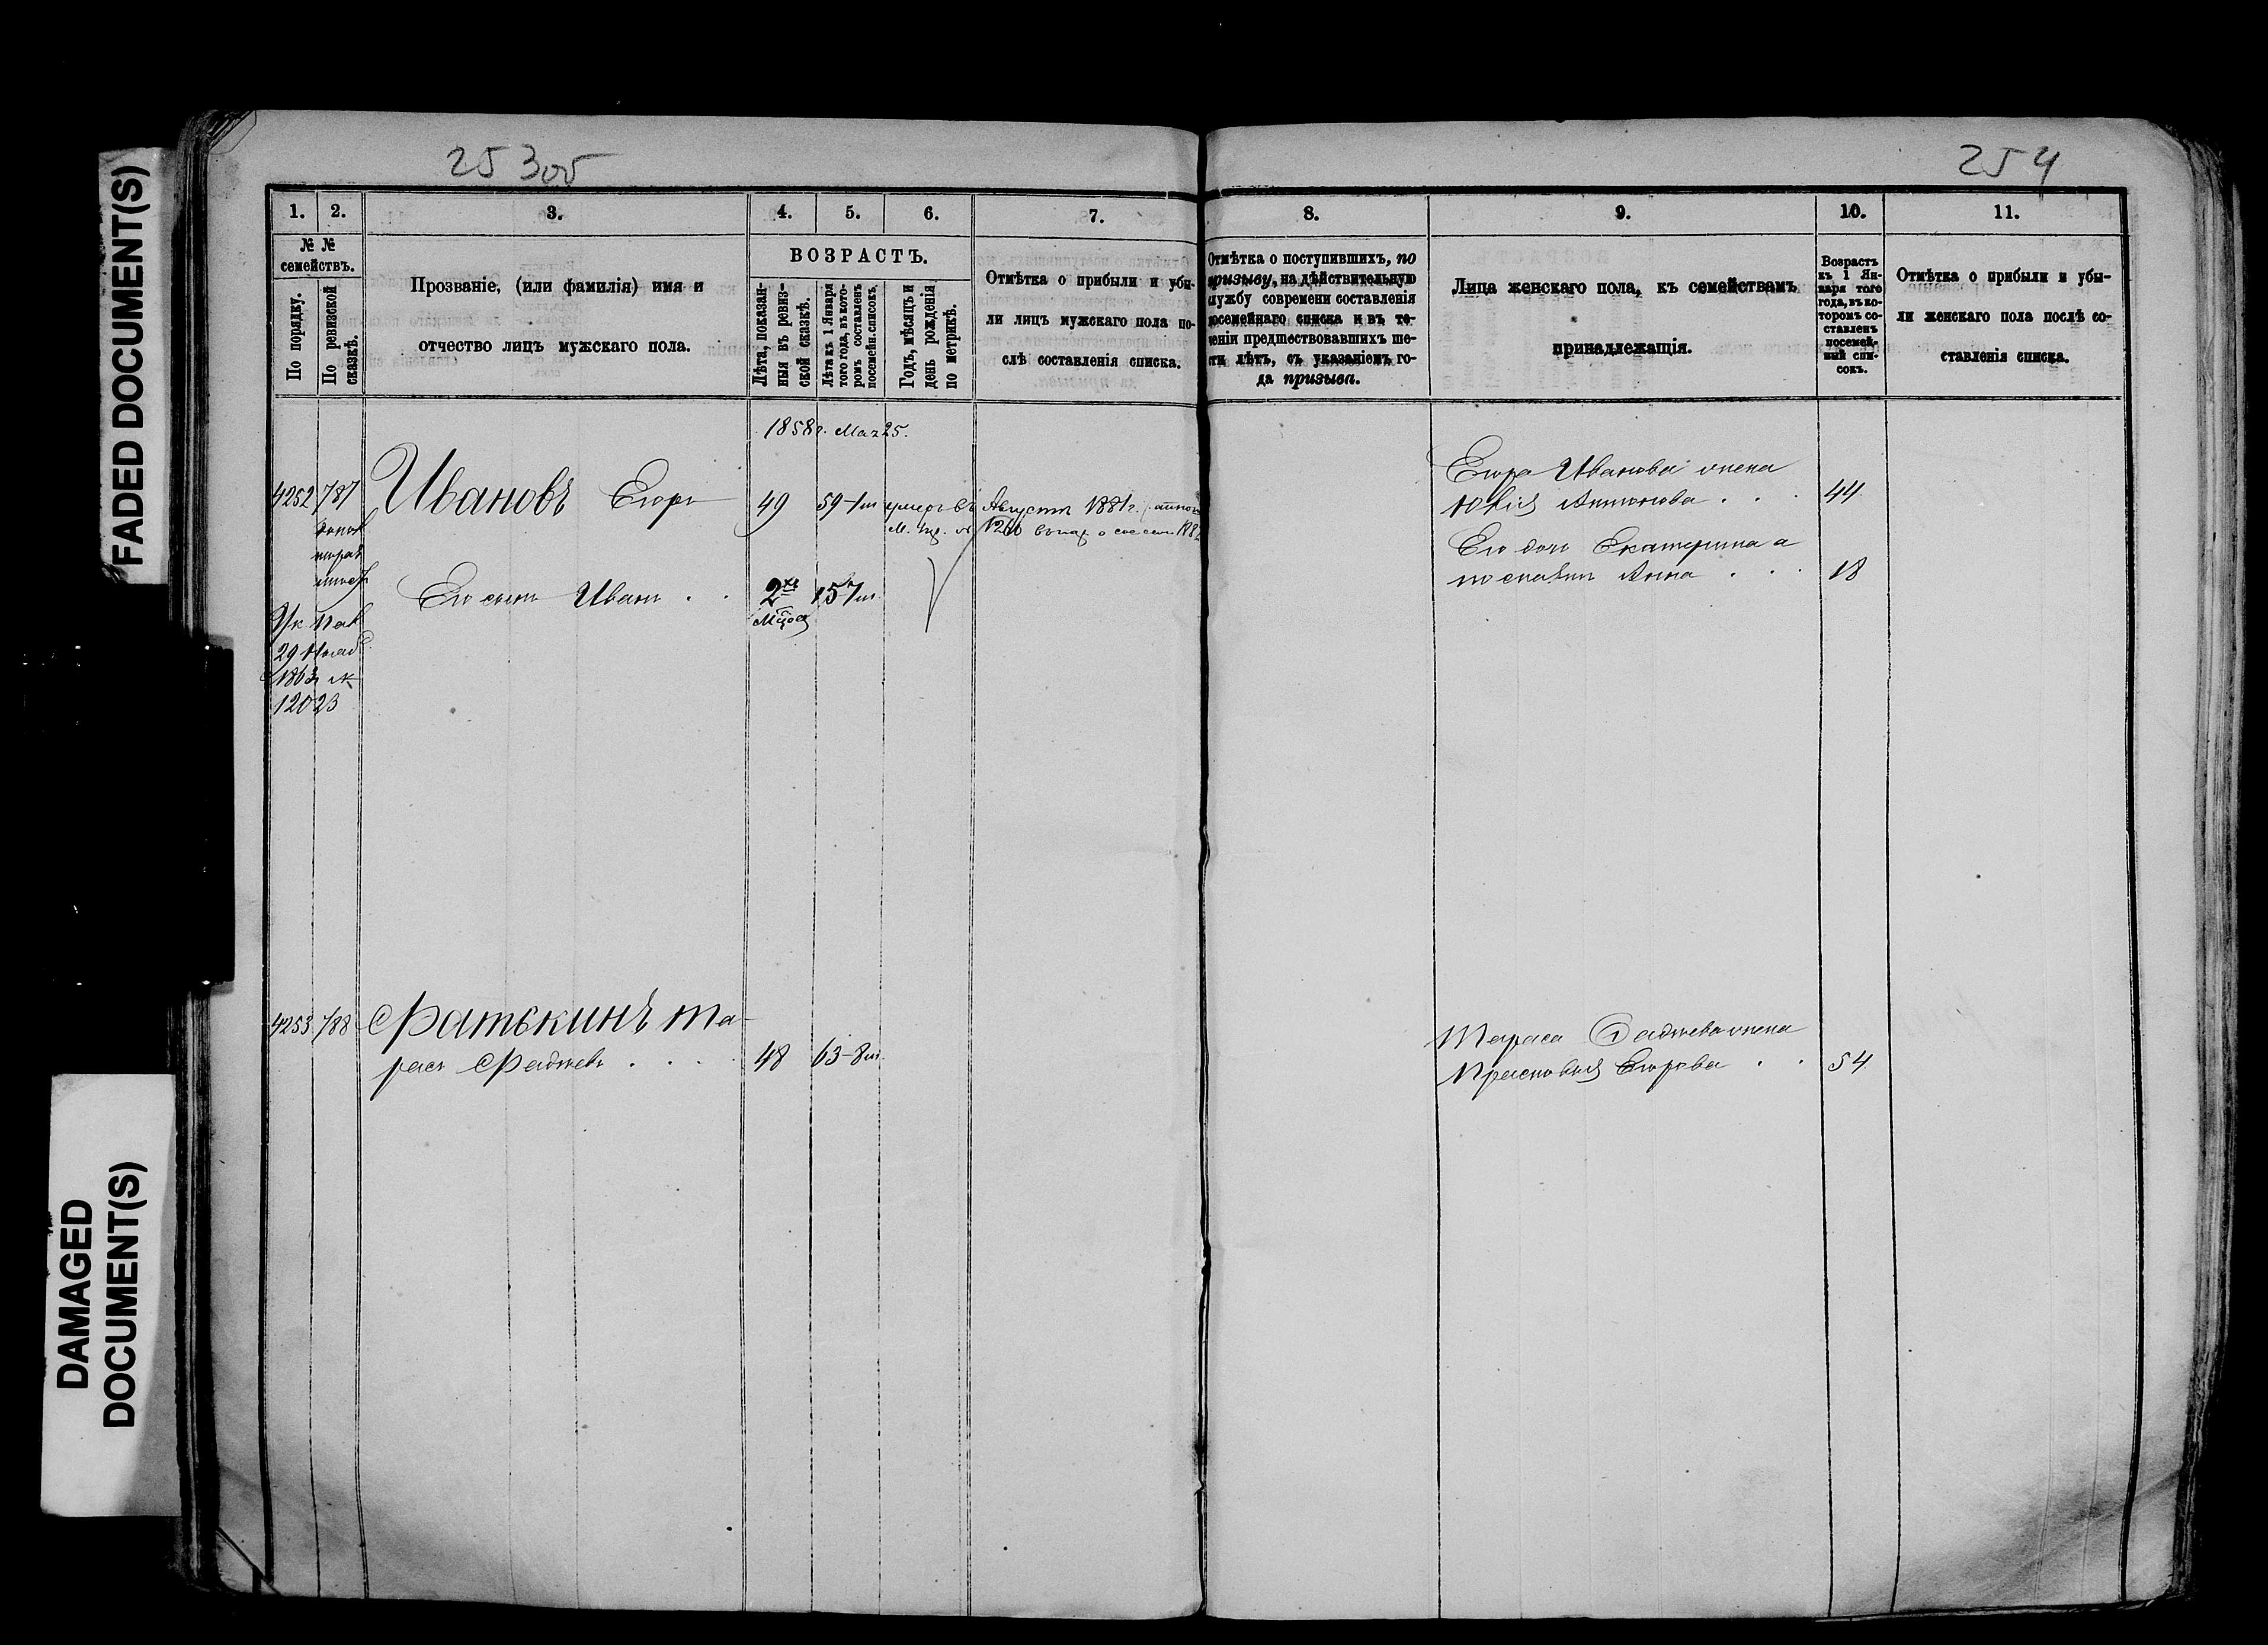 FADED DOCUMENT(S)
DAMAGED
DOCUMENT(S)
25 3об
254
1. 2. 3. 4. 5. 6. 7. 8. 9. 10. 11.
№ №
семействъ.
По порядку.
По ревизской
сказкѣ.
Прозваніе, (или фамилія) имя и
отчество лицъ мужскаго пола.
ВОЗРАСТЪ.
Лѣта, показан-
ныя въ ревиз-
ской сказкѣ.
Лѣта къ 1 Января
того года, въ кото-
ромъ составленъ
посемейн. списокъ.
Годъ, мѣсяцъ и
день рожденія
по метрикѣ.
Отмѣтка о прибыли и убы-
ли лицъ мужскаго пола по-
слѣ составленія списка.
Отмѣтка о поступившихъ, по
призыву, на дѣйствительную
лужбу современи составленія
посемейнаго списка и въ те-
ченіи предшествовавшихъ ше-
сти лѣтъ, съ указаніемъ го-
да призыва.
Лица женскаго пола, къ семействамъ
принадлежащія.
Возрастъ
къ 1 Ян-
варя того
года, въ ко-
торомъ со-
ставленъ
посемей-
ный спи-
сокъ.
Отмѣтка о прибыли и убы-
ли женскаго пола послѣ со-
ставленія списка.
1858г. Мая 25.
4252 787 Ивановъ Егоръ 49 59-7м умеръ въ Августѣ 1881г.
М. №1260 1882
Его сынъ Иванъ . . 2хъ 15 7м.
Мѣся
29 Нояб
1863г №
12023
Егора Иванова жена
Юлія Антонова . . . 44
Его дочь Екатерина а
по Анна . . . 18
4253 788 Фатькинъ Та-
расъ Фадѣевъ . . . . 48 63-8м.
Тараса Фадѣева жена
Прасковья Егорова . . 54